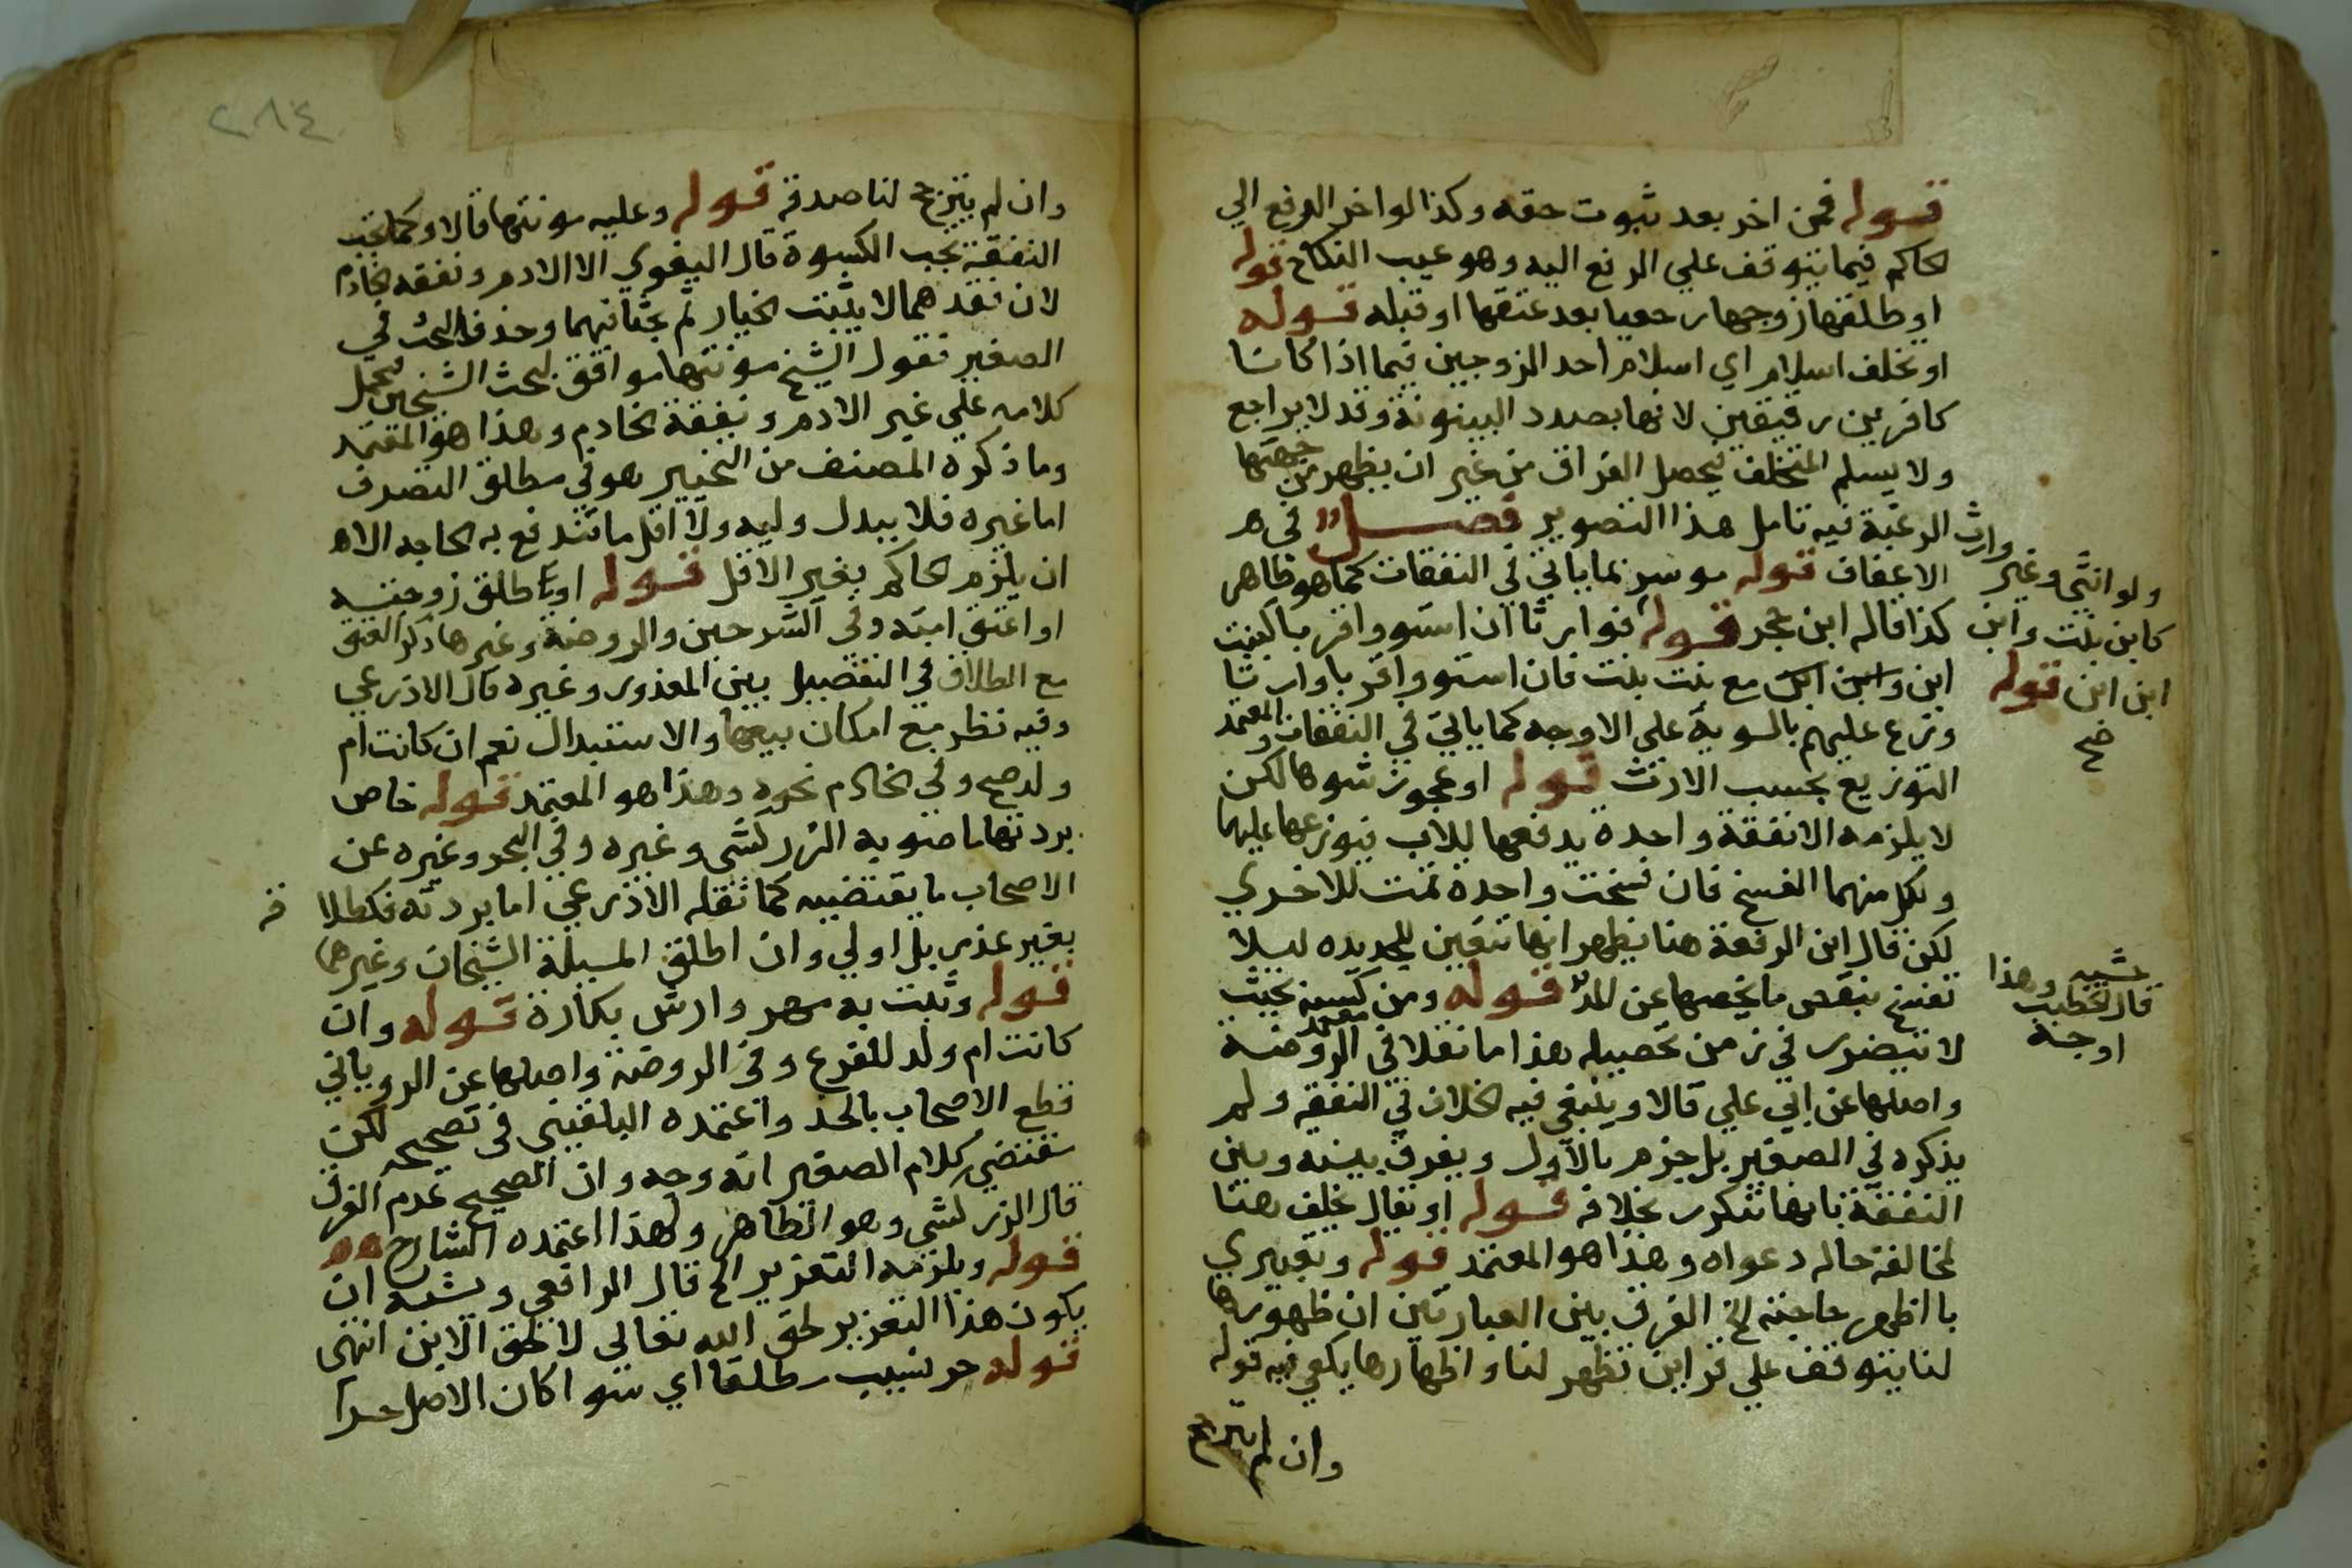 قوله فمن اخر بعد ثبوت حقه وكذا لو اخر الرفع الي
الحاكم فيما يتوقف علي الرفع اليه وهو عيب النكاح قوله
او طلقها زوجها رجعيا بعد عتقها او قبله قوله
او تخلف اسلام اي اسلام احد الزوجين فيما اذا كانا
كافرين رقيقين لانها بصدد البينونة وقد لا يراجع
ولا يسلم المتخلف فيحصل الفراق من غير ان يظهر من جهتها
الرغبة فيه تامل هذا التصوير فصل في
الاعفاف قوله موسر بما ياتي في النفقات كما هو ظاهر
كذا قاله ابن حجر قوله فوارثا ان استووا قربا كبنت
ابن وابن ابن مع بنت بنت فان استووا قربا وارثا
وزع عليهم بالسوية علي الاوجه كما ياتي في النفقات والمعتمد
التوزيع بحسب الارث قوله او عجوز شوها لكن
لا يلزمه الا نفقة واحدة يدفعها للاب فيوزعها عليهما
ولكل منهما الفسخ فان فسخت واحدة تمت للاخري
لكن قال ابن الرفعة هنا يظهر انها تتعين للجديده ليلا
تفسخ بنقص ما يخصها عن المد قوله ومن كسبه بحيث
لا يتضرر في زمن تحصيله هذا ما نقلا في الروضة معتمد
واصلها عن ابي علي قالا وينبغي فيه الخلاف في النفقه ولم
يذكره في الصغير بل جزم بالاول ويفرق بينه وبين
النفقة بانها تتكرر بخلافه قوله او يقال يحلف هنا
لمخالفة حاله دعواه وهذا هو المعتمد قوله وتعبيري
با اظهر حاجته الخ الفرق بين العبارتين ان ظهورها
لنا يتوقف علي قراين تظهر لنا واظهارها يكفي فيه قوله
وان لم يترجح
ولو انثي وغير وارث
كابن بنت وابن
ابن ابن قوله
صح
عشيه
قال الخطيب وهذا
اوجه
٢٨٤
وان لم يترجح لنا صدقه قوله وعليه مونتها قالا وكما تجب
النفقة تجب الكسوة قال البغوي الا الادم ونفقه الخادم
لان فقدهما لا يثبت الخيار ثم بحثا فيهما وحذفا البحث في
الصغير فقول الشيخ مونتها موافق لبحث الشيخين فيحمل
كلامه علي غير الادم ونفقة الخادم وهذا هو المعتمد
وما ذكره المصنف من التخيير هو في مطلق التصرف
اما غيره فلا يبدل وليه ولا اقل ما تندفع به الحاجه الا
ان يلزم الحاكم بغير الاقل قوله او طلق زوجته
او اعتق امته وفي الشرحين والروضة وغيرها ذكر العتق
مع الطلاق في التفصيل بين المعذور وغيره قال الاذرعي
وفيه نظر مع امكان بيعها والاستبدال نعم ان كانت ام
ولد صح وفي الخادم نحوه وهذا هو المعتمد قوله خاص
بردتها ما صوبه الزركشي وغيره وفي البحر وغيره عن
الاصحاب ما يقتضيه كما نقله الاذرعي اما بردته فكطلاقه
بغير عذر بل اولي وان اطلق المسيلة الشيخان وغيرهما
قوله وثبت به مهر وارش بكارة قوله وان
كانت ام ولد للفرع وفي الروضة واصلها عن الروياني
قطع الاصحاب بالحد واعتمده البلقيني في تصحيحه لكن
مقتضي كلام الصغير انه وجه وان الصحيح عدم الفرق
قال الزركشي وهو الظاهر ولهذا اعتمده الشارح
قوله ويلزمه التعزير الخ قال الرافعي ويشبه ان
يكون هذا التعزير لحق الله تعالي لا لحق الابن انتهي
قوله حر نسيب مطلقا اي سوا كان الاصل حرا